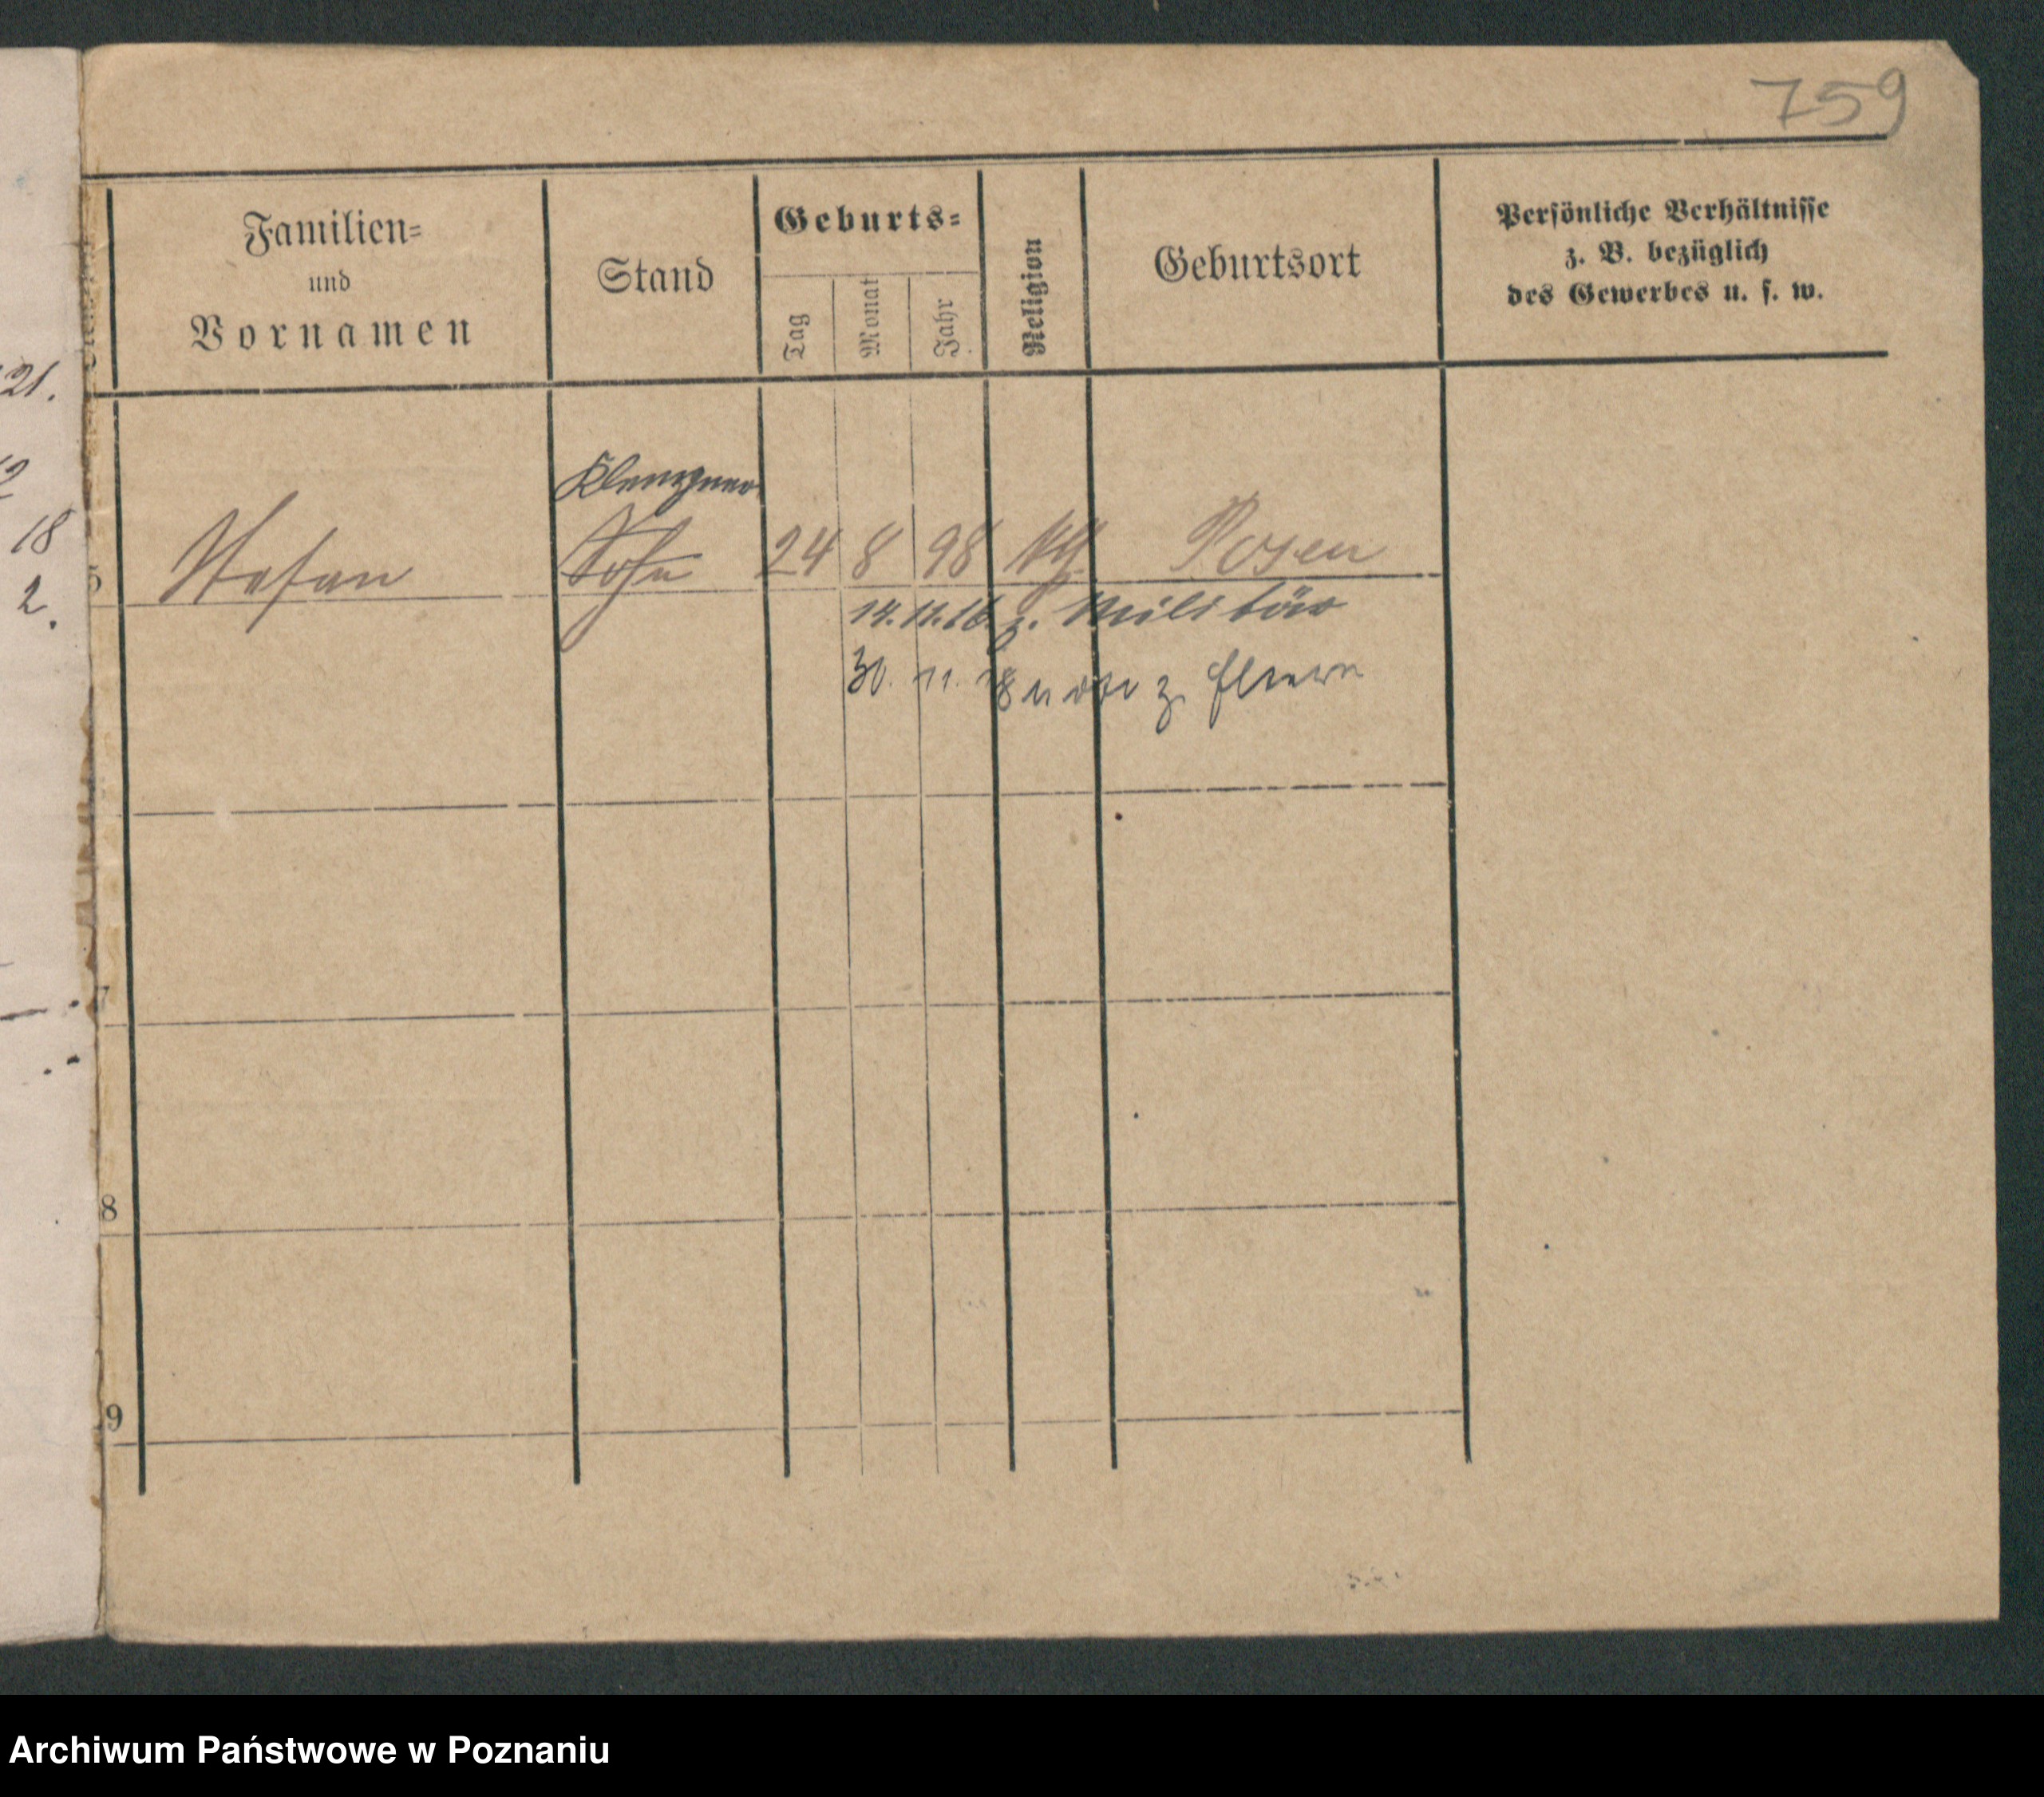 759
Familien=
und
Vornamen
Stand
Geburts=
Tag
Monat
Jahr
Religion
Geburtsort
Persönliche Verhältnisse
z. B. bezüglich
des Gewerbes u. s. w.
21.
2
18
2.
Klempner
Stefan Sohn 24 8 98 kth Posen
14.11.16. z. Militär
30. 11. 18 z. Eltern
7
8
9
Archiwum Państwowe w Poznaniu